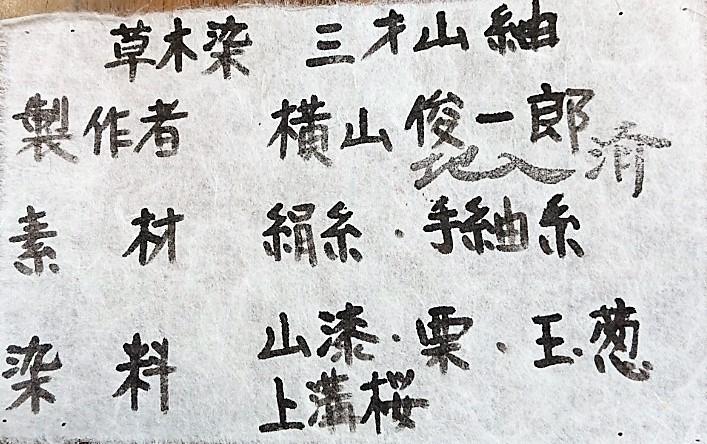 草木染 三才山紬
製作者 横山俊一郎
記入済
素材 絹糸・手紬糸
染料 山漆・栗・玉葱
上溝桜